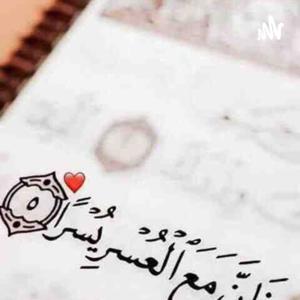 فَإِنَّ مَعَ ٱلْعُسْرِ يُسْرًا ۝٥